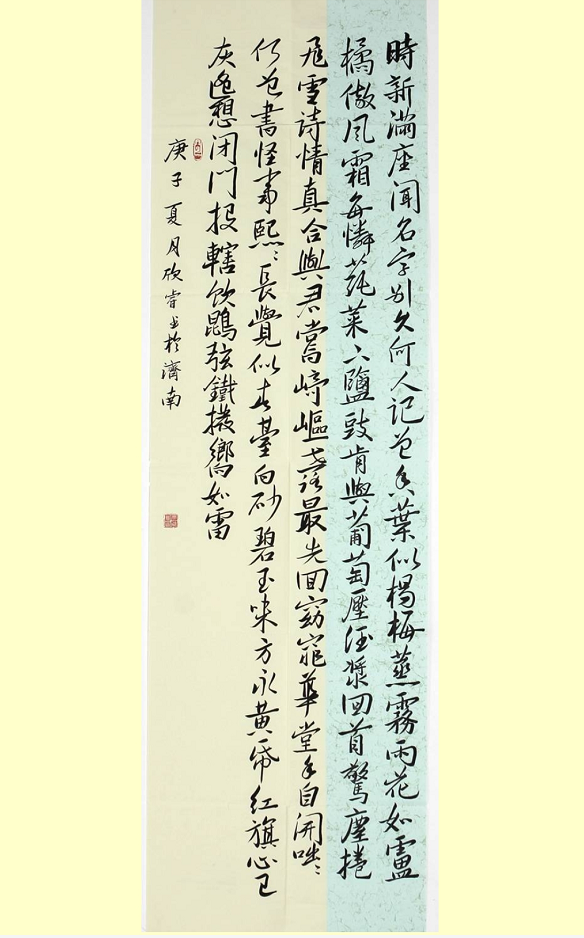 時新滿座聞名字別久何人記色香葉似楊梅蒸霧雨花如盧
橘傲風霜每憐蒓菜下鹽豉肯與葡萄壓酒漿回首驚塵捲
飛雪詩情真合與君嘗崎嶇世路最先回窈窕華堂手自開咄〻
何曾書怪事熙〻長覺似春臺白砂碧玉味方永黃帋紅旗心已
灰遙想閉門投轄飲鵾弦鐵撥響如雷
庚子夏月欣睿书於濟南